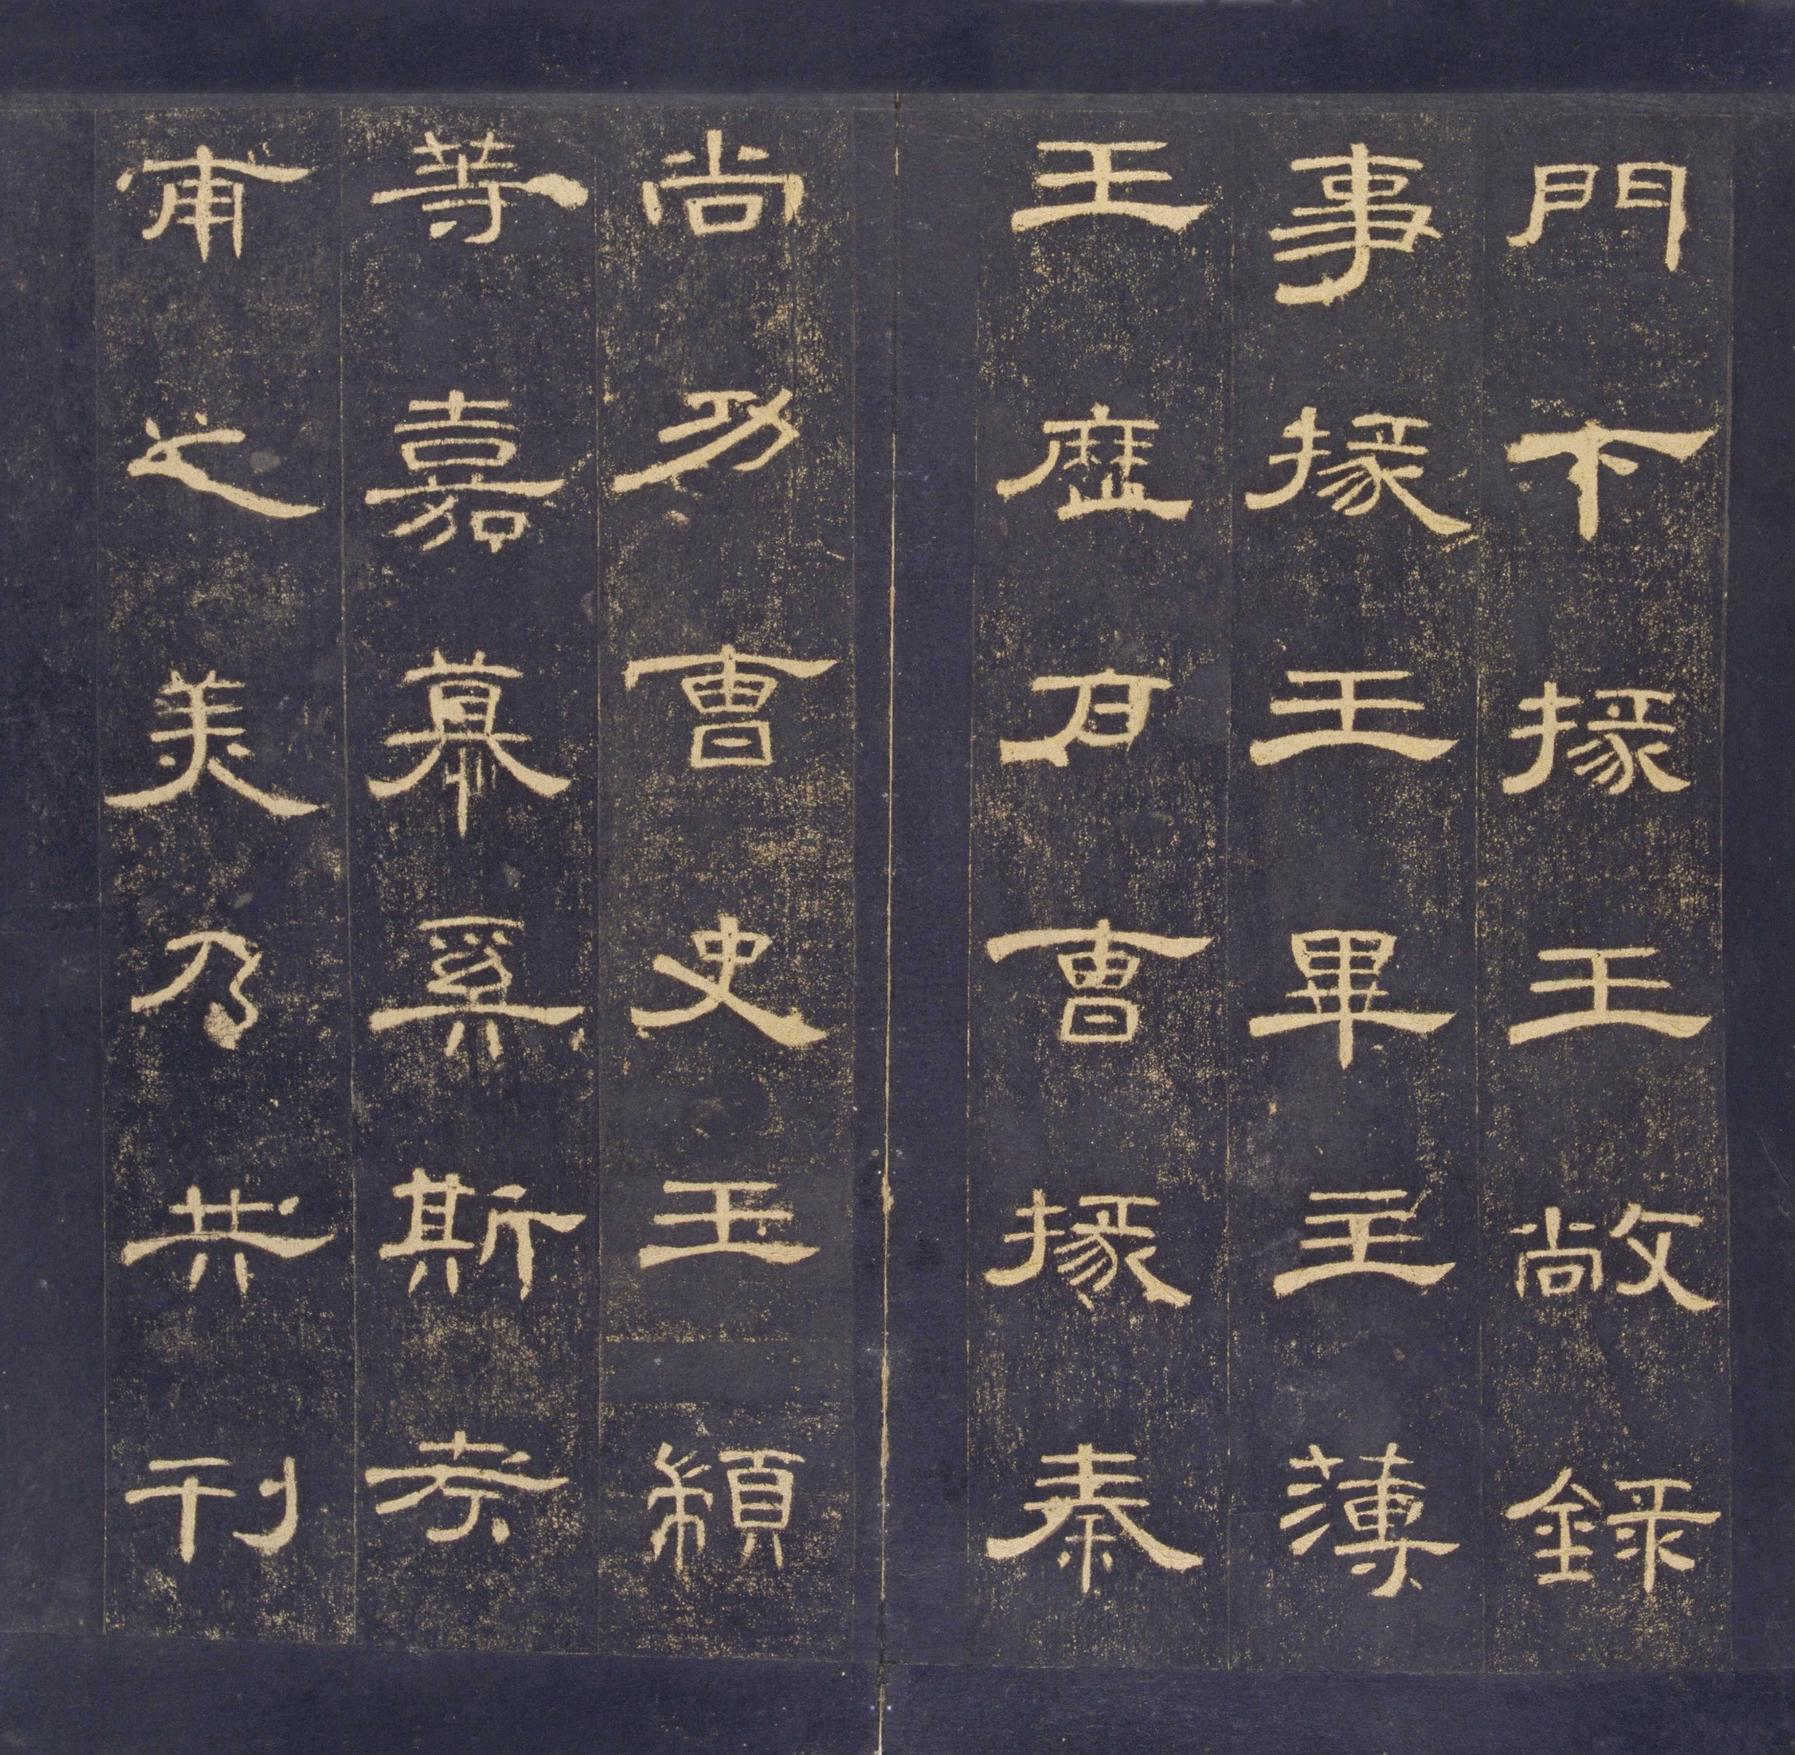 門下掾王敞錄
事掾王畢主薄
王歷戶曹掾秦
尚功曹史王顓
等嘉慕奚斯考
甫之美乃共刊